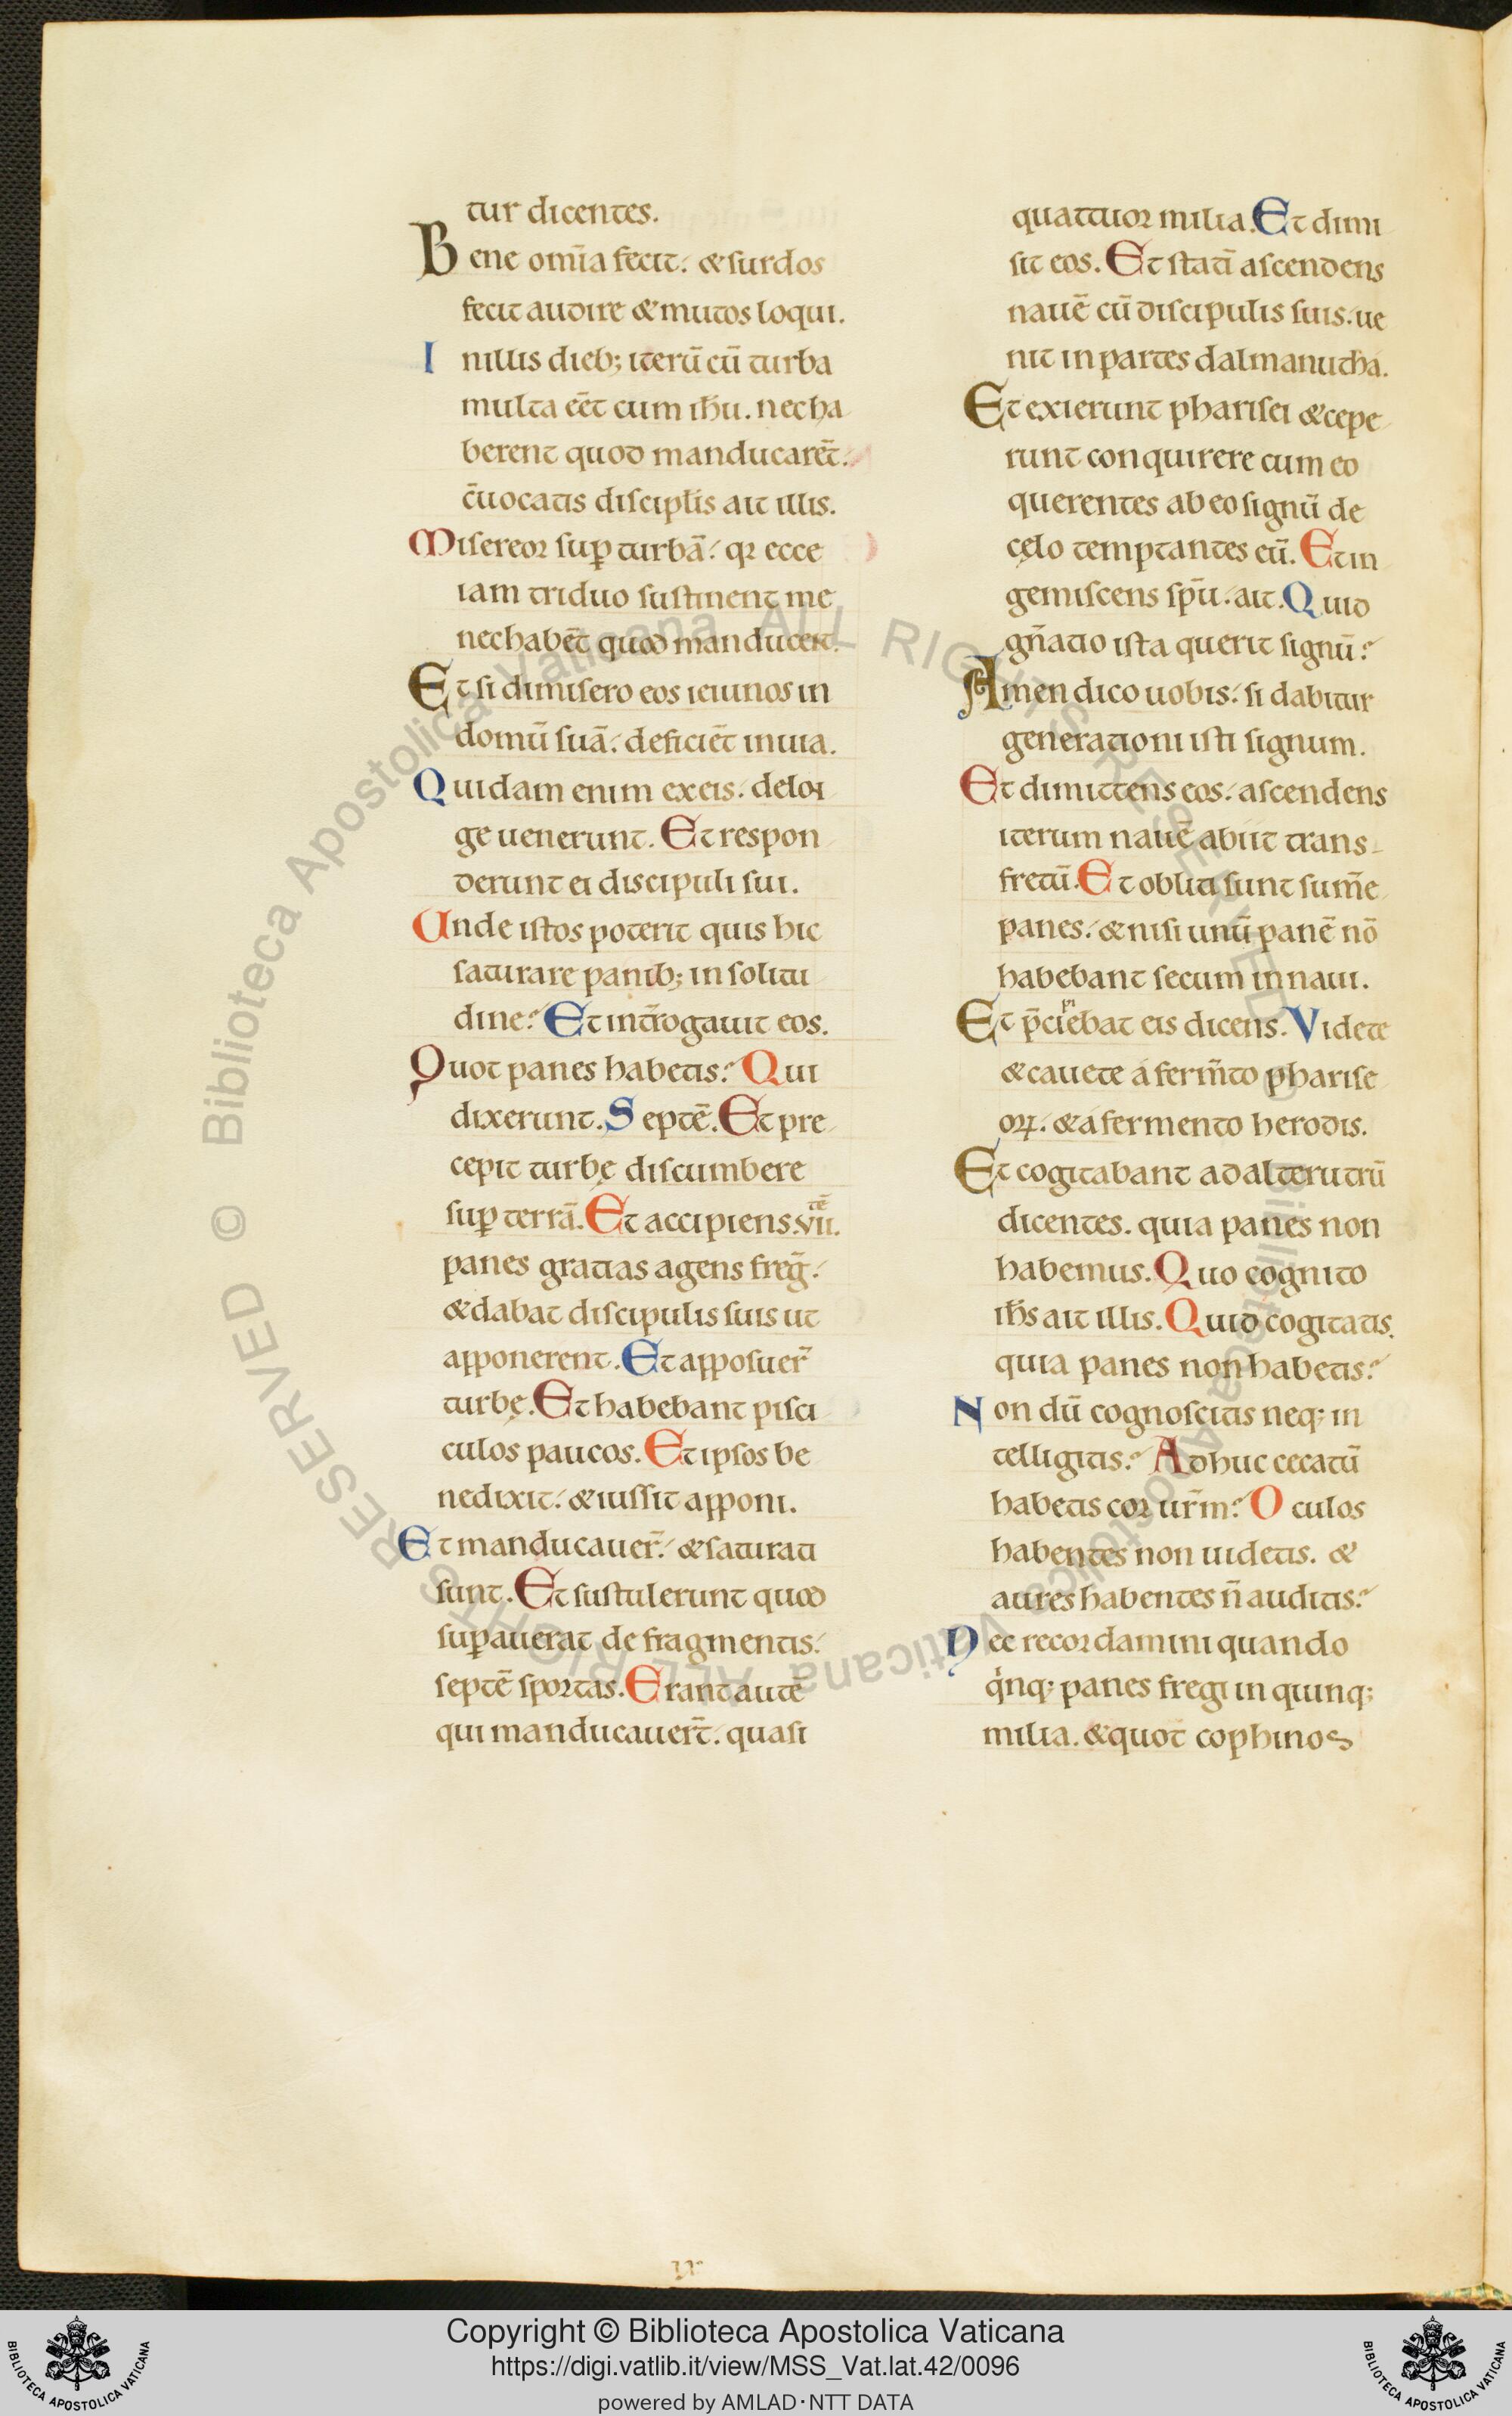 tur dicentes.
Bene om̅ia fecit: & surdos
fecit audire & mutos loqui.
In illis dieb; iterū cū turba
multa eēt cum ih̅u. nec ha
berent quod manducarēt:
c̅uocatis discipl̅is ait illis.
Misereor sup̲ turbā: qꝛ ecce
iam triduo sustinent me
nec habēt quod manducent.
Et si dimisero eos ieiunos in
domū suā: deficiēt in uia.
Quidam enim ex eis: de lon
ge uenerunt. Et respon
derunt ei discipuli sui.
Unde istos poterit quis hic
saturare panib; in solitu
dine? Et int̅rogauit eos.
Quot panes habetis? Qui
dixerunt. Septē. Et pre
cepit turbę discumbere
suꝑ terrā. Et accipiens .vii.tē
panes gratias agens freg̅:
& dabat discipulis suis ut
apponerent. Et apposuer̅
turbę. Et habebant pisci
culos paucos. Et ipsos be
nedixit: & iussit apponi.
Et manducauer̅: & saturati
sunt. Et sustulerunt quod
suꝑauerat de fragmentis:
septē sportas. Erant autē
qui manducauer̅t: quasi
quattuor milia. Et dimi
sit eos. Et statī ascendens
nauē cū discipulis suis: ue
nit in partes dalmanutha.
Et exierunt pharisei & cepe
runt conquirere cum eo
querentes ab eo signū de
cęlo temptantes eū. Et in
gemiscens sp̅u: ait. Quid
gn̅atio ista querit signū?
Amen dico uobis: si dabitur
generationi isti signum.
Et dimittens eos: ascendens
iterum nauē abiit trans
fretū. Et obliti sunt sum̅e
panes: & nisi unū panē nō
habebant secum in naui.
Et p̅cipiebat eis dicens. Videte
& cauete a ferm̅to pharise
oꝝ: & a fermento herodis.
Et cogitabant ad alterutrū
dicentes. quia panes non
habemus. Quo cognito
ih̅s ait illis. Quid cogitatis.
quia panes non habetis?
Non dū cognoscitis neq; in
telligitis? Adhuc cecatū
habetis cor ur̅m? Oculos
habentes non uidetis. &
aures habentes n̅ auditis?
Nec recordamini quando
qⁱnq; panes fregi in quinq;
milia. & quot cophinos
Copyright © Biblioteca Apostolica Vaticana
https://digi.vatlib.it/view/MSS_Vat.lat.42/0096
powered by AMLAD·NTT DATA
BIBLIOTECA APOSTOLICA VATICANA
BIBLIOTECA APOSTOLICA VATICANA
© Biblioteca Apostolica Vaticana ALL RIGHTS RESERVED
© Biblioteca Apostolica Vaticana ALL RIGHTS RESERVED